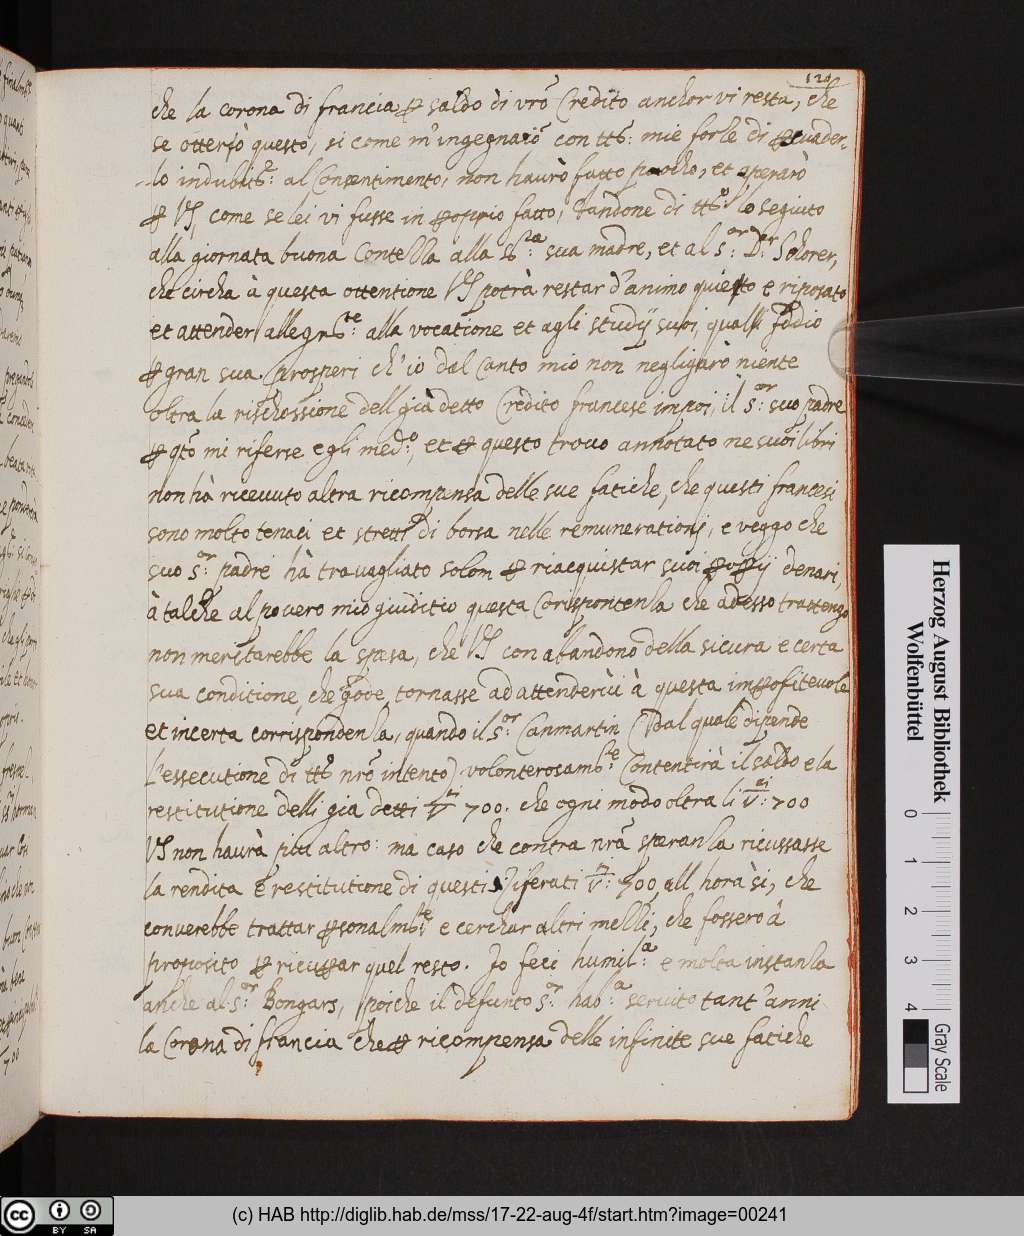 120
che la corona di francia ꝑ saldo di vrõ Credito anchor vi resta, che
se otterrò questo, si come m'ingegnarò con ttẽ: mie forse di ꝑsuader-
lo indubitẽ: al Consentimento, non haurò fatto puocho, et operarò
ꝑ VS, come se lei vi fusse in ꝑoprio fatto, dandone di ttõ lo seguito
alla giornata buona Contezza alla S.ra sua madre, et al s.or D.r Schorer,
che circha à questa ottentione VS potrà restar d'animo quieto e riposato
et attender allegrm.te alla vocatione et agli studij suoi, quali Iddio
ꝑ gran sua. Prosperi ch'io dal Canto mio non negligarò niente
oltra la rischossione dell già detto Credito francese impoi, il s.or suo padre
ꝑ qtõ mi riferse egli med.o, et ꝑ questo trouo annotato ne suoi libri
non hà riceuuto altra ricompensa delle sue fatiche, che questi francesi
sono molto tenaci et stretti di borsa nelle remunerationi, e veggo che
suo s.or padre hà trauagliato solom ꝑ riacquistar suoi ꝑoprij denari,
à talche al pouero mio giuditio questa Corispontenza che adesso trattengo
non meritarebbe la spesa, che VS con abandono della sicura e certa
sua conditione, che gode, tornasse ad attenderui à questa imꝑofiteuole
et incerta corrispondenza, quando il s.or Canmartin (dal quale dipende
L'essecutione di ttõ nrõ intento) volonterosam.te Contentirà il saldo e la
restitutione delli gia detti V.ti 700. che ogni modo oltra li V.ti: 700
VS non haurà piu altro: ma caso che contra nrã speranza ricussasse
la rendita e restitutione di questi riferuti V.ti: 700, all'hora si, che
conuerebbe trattar ꝑsonalmẽte e cerchar altri mezzi, che fossero à
proposito ꝑ ricuꝑar quel resto. Io feci humil.a e molta instanza
anche al s.or Bongars, poiche il defunto s.or hab.a seruito tant'anni
la Corona di francia che ꝑ ricompensa delle infinite sue fatiche
Herzog August Bibliothek
Wolfenbüttel
0 1 2 3 4
Gray Scale
cc BY SA
(c) HAB http://diglib.hab.de/mss/17-22-aug-4f/start.htm?image=00241